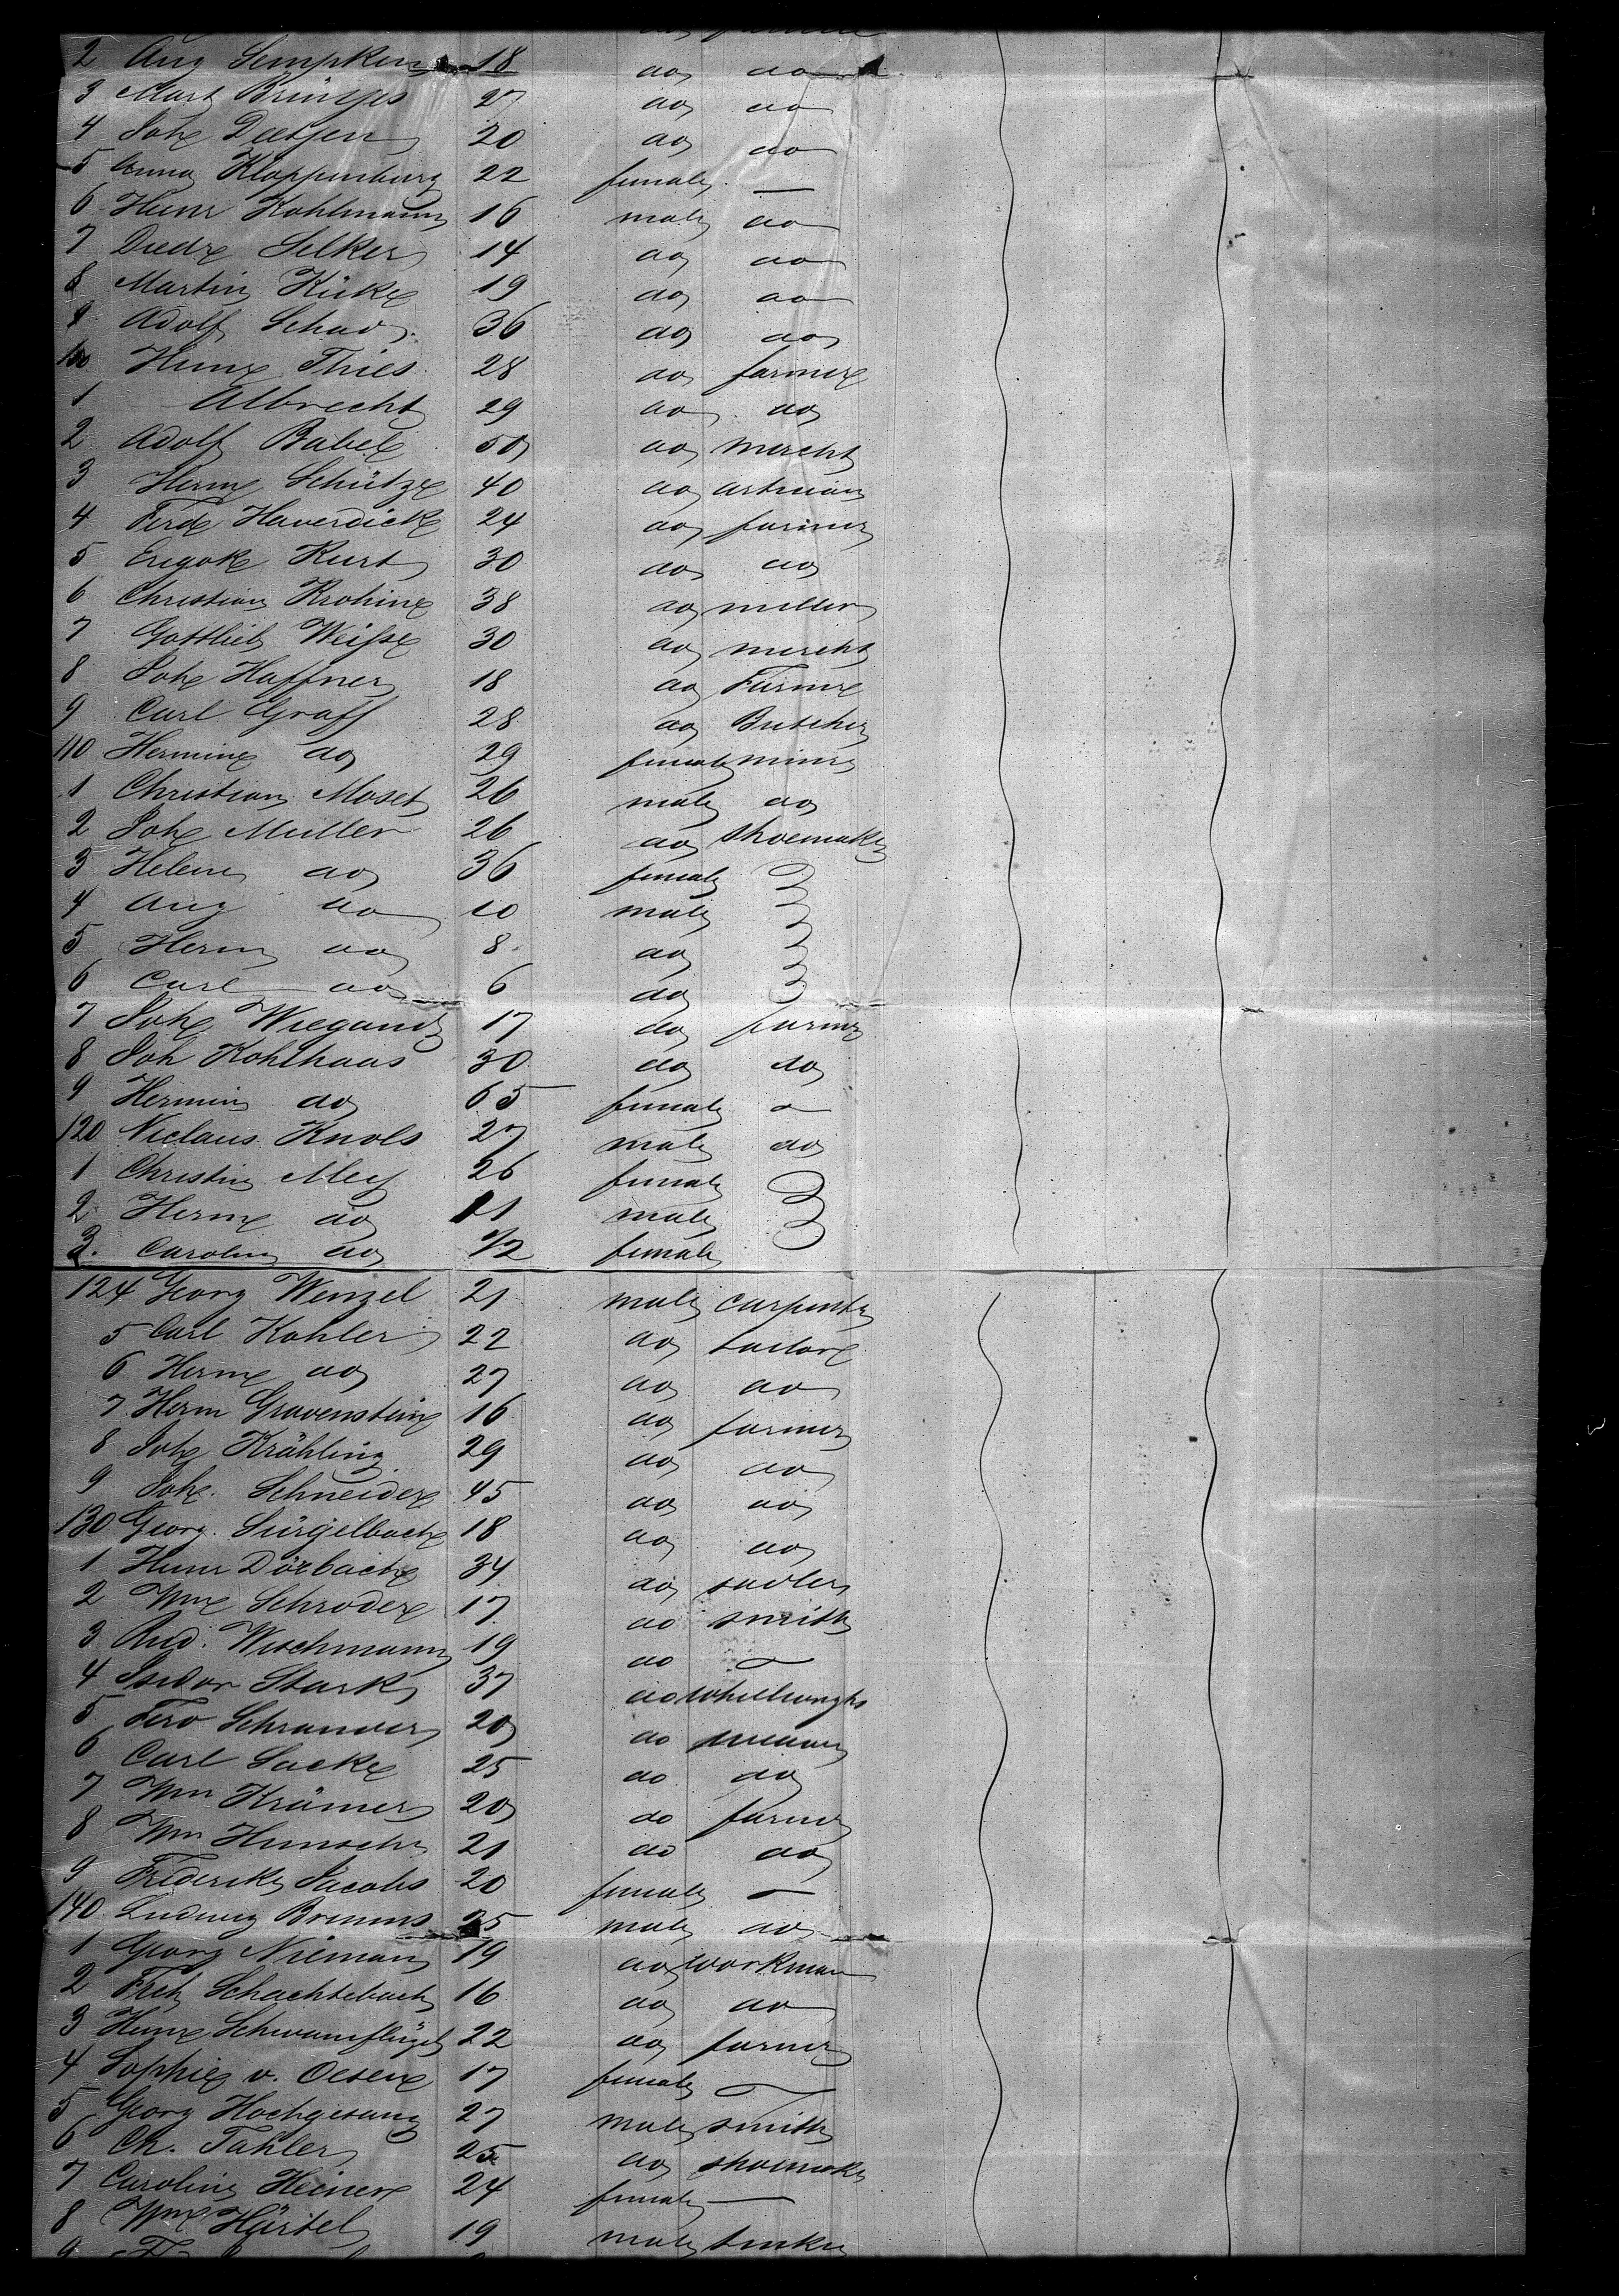 2 Aug Sempken 18 do do
3 Mart Brüntjes 27 do do
4 Joh Deetjen 20 do do
5 Anna Kloppenburg 22 female —
6 Heinr Kohlmann 16 male do
7 Diedr Selker 14 do do
8 Martin Kück 19 do do
9 Adolf Schad 36 do do
100 Heinr Thies 28 do farmer
1 Albrecht 29 do do
2 Adolf Babel 50 do mercht
3 Herm Schütze 40 do
4 Ferd Haverdick 24 do farmer
5 Kurt 30 do do
6 Christian Krohme 38 do miller
7 Gottlieb Weiße 30 do mercht
8 Joh Haffner 18 do Farmer
9 Carl Graff 28 do Butcher
110 Hermine do 29 female miner
1 Christian Moset 26 male do
2 Joh Muller 26 do shoemaker
3 Helene do 36 female
4 Aug do 10 male
5 Herm do 8 do
6 Carl do 6 do
7 Joh Wiegand 17 do farmer
8 Joh Kohlhaas 30 do do
9 Hermin do 65 female —
120 Niclaus Knols 27 male do
1 Christin Mey 26 female
2 Herm do 11 male
3. Carolin do 1/2 female
124 Georg Wenzel 21 male carpenter
5 Carl Kohler 22 do tailor
6 Herm do 27 do do
7 Herm Gravenstein 16 do farmer
8 Joh Krähling 29 do do
9 Joh. Schneider 45 do do
130 Georg. Sürgelbach 18 do do
1 Heinr Dörbach 34 do sadler
2 Wm Schroder 17 do smith
3 Rud. Wischmann 19 do —
4 Isidor Stark 37 do
5 Ferd Schrander 20 do
6 Carl Sacke 25 do do
7 Wm Krämer 20 do farmer
8 Wm Hunsche 21 do do
9 Frederike Jacobs 20 female —
140 Ludwig Bremms 25 male do
1 Georg Nieman 19 do workman
2 Fritz Schachtebach 16 do do
3 Heinr Schwanflügel 22 do farmer
4 Sophie v. Oesen 17 female —
5 Georg Hochgesang 27 male smith
6 Ch. Tahler 25 do shoemaker
7 Carolin Heiner 24 female —
8 Wm Härtel 19 male
9